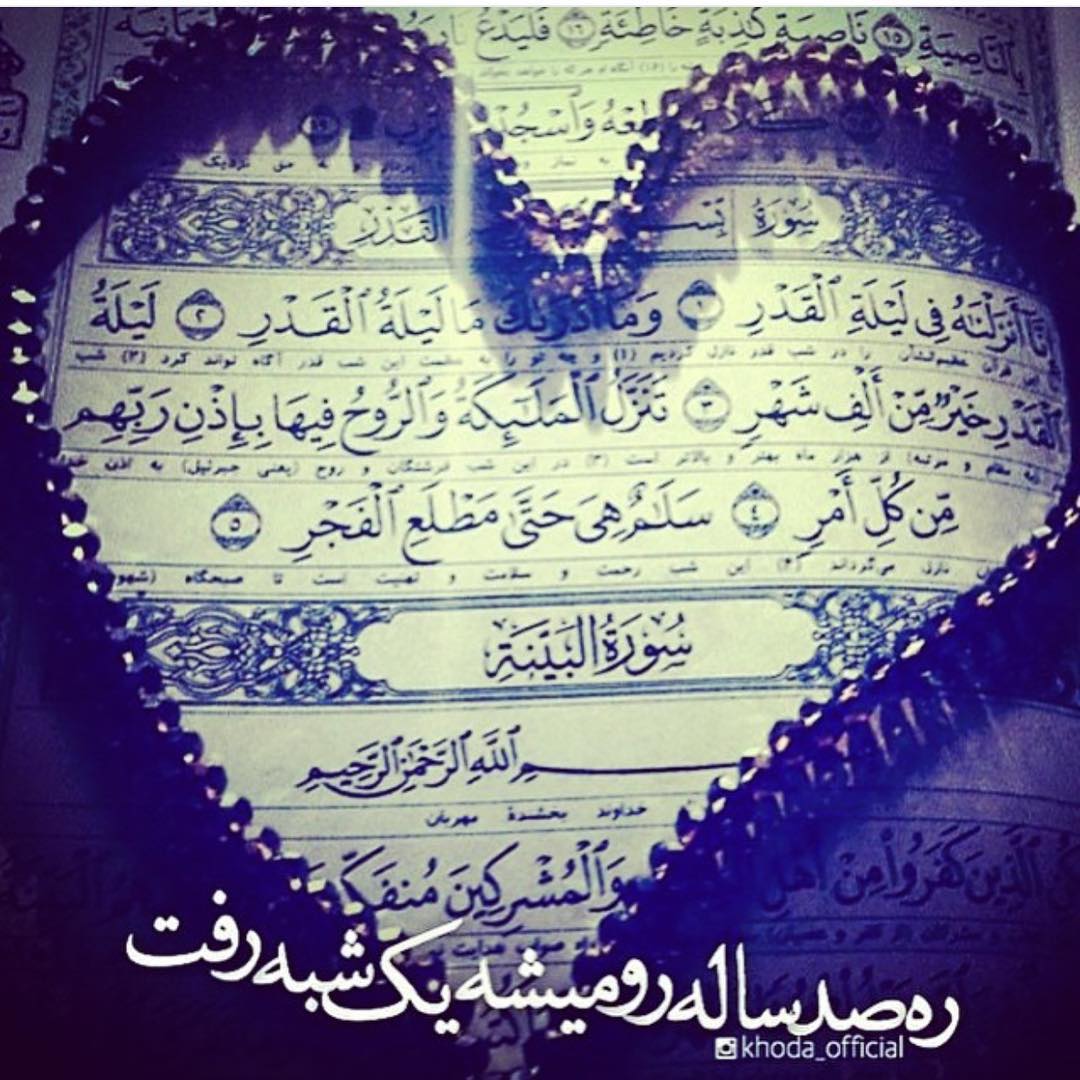 بِالنَّاصِيَةِ ۝١٥ نَاصِيَةٍ كَٰذِبَةٍ خَاطِئَةٍ ۝١٦ فَلْيَدْعُ
وَٱسْجُدْ
سُورَةُ الْقَدْرِ
إِنَّا أَنزَلْنَٰهُ فِى لَيْلَةِ ٱلْقَدْرِ ۝١ وَمَا أَدْرَىٰكَ مَا لَيْلَةُ ٱلْقَدْرِ ۝٢ لَيْلَةُ
این قرآن عظیم‌الشأن را در شب قدر نازل کردیم (۱) و چه تو را به عظمت این شب قدر آگاه تواند کرد (۲) شب
ٱلْقَدْرِ خَيْرٌ مِّنْ أَلْفِ شَهْرٍ ۝٣ تَنَزَّلُ ٱلْمَلَٰٓئِكَةُ وَٱلرُّوحُ فِيهَا بِإِذْنِ رَبِّهِم
مقام و مرتبه) از هزار ماه بهتر و بالاتر است (۳) در این شب فرشتگان و روح (یعنی جبرئیل) به اذن خدا
مِّن كُلِّ أَمْرٍ ۝٤ سَلَٰمٌ هِىَ حَتَّىٰ مَطْلَعِ ٱلْفَجْرِ ۝٥
نازل می‌گرداند (۴) این شب رحمت و سلامت و تهنیت است تا صبحگاه
سُورَةُ الْبَيِّنَةِ
بِسْمِ ٱللَّهِ ٱلرَّحْمَٰنِ ٱلرَّحِيمِ
خداوند بخشندهٔ مهربان
ٱلَّذِينَ كَفَرُوا۟ مِنْ أَهْلِ وَٱلْمُشْرِكِينَ مُنفَكِّينَ
ره صد ساله رو میشه یک شبه رفت
khoda_official